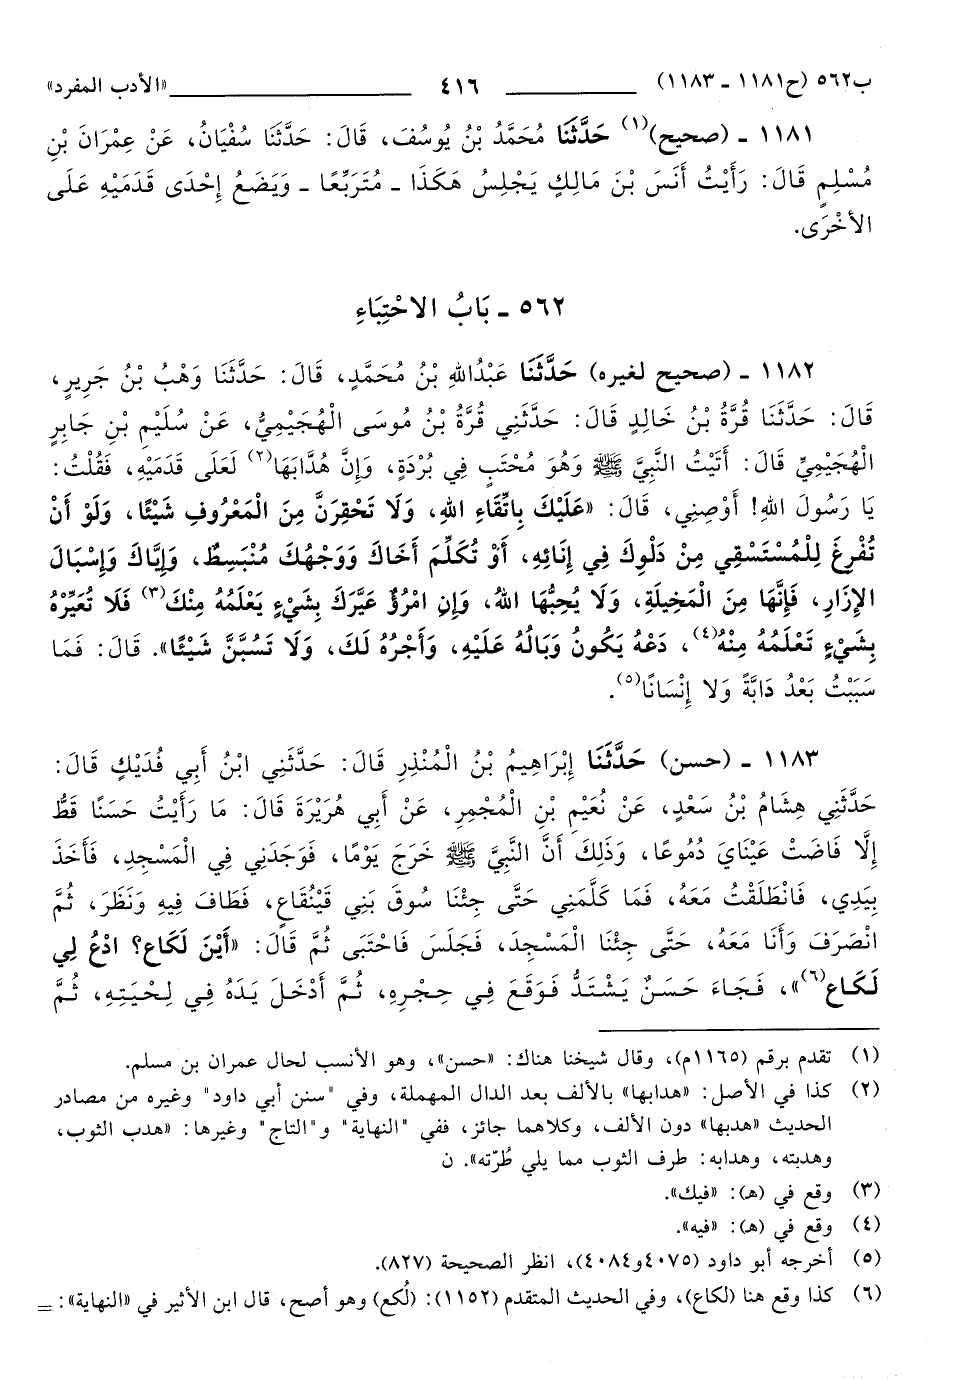 ب٥٦٢ (ح١١٨١ ـ ١١٨٣) ٤١٦ «الأدب المفرد»
١١٨١ ـ (صحيح)(١) حَدَّثَنَا مُحَمَّدُ بْنُ يُوسُفَ، قَالَ: حَدَّثَنَا سُفْيَانُ، عَنْ عِمْرَانَ بْنِ
مُسْلِمٍ قَالَ: رَأَيْتُ أَنَسَ بْنَ مَالِكٍ يَجْلِسُ هَكَذَا ـ مُتَرَبِّعًا ـ وَيَضَعُ إِحْدَى قَدَمَيْهِ عَلَى
الأُخْرَى.
٥٦٢ ـ بَابُ الاحْتِبَاءِ
١١٨٢ ـ (صحيح لغيره) حَدَّثَنَا عَبْدُاللهِ بْنُ مُحَمَّدٍ، قَالَ: حَدَّثَنَا وَهْبُ بْنُ جَرِيرٍ،
قَالَ: حَدَّثَنَا قُرَّةُ بْنُ خَالِدٍ قَالَ: حَدَّثَنِي قُرَّةُ بْنُ مُوسَى الْهُجَيْمِيُّ، عَنْ سُلَيْمِ بْنِ جَابِرٍ
الْهُجَيْمِيِّ قَالَ: أَتَيْتُ النَّبِيَّ ﷺ وَهُوَ مُحْتَبٍ فِي بُرْدَةٍ، وَإِنَّ هُدَّابَهَا(٢) لَعَلَى قَدَمَيْهِ، فَقُلْتُ:
يَا رَسُولَ اللهِ! أَوْصِنِي، قَالَ: «عَلَيْكَ بِاتِّقَاءِ اللهِ، وَلَا تَحْقِرَنَّ مِنَ الْمَعْرُوفِ شَيْئًا، وَلَوْ أَنْ
تُفْرِغَ لِلْمُسْتَسْقِي مِنْ دَلْوِكَ فِي إِنَائِهِ، أَوْ تُكَلِّمَ أَخَاكَ وَوَجْهُكَ مُنْبَسِطٌ، وَإِيَّاكَ وَإِسْبَالَ
الإِزَارِ، فَإِنَّهَا مِنَ الْمَخِيلَةِ، وَلَا يُحِبُّهَا اللهُ، وَإِنِ امْرُؤٌ عَيَّرَكَ بِشَيْءٍ يَعْلَمُهُ مِنْكَ(٣) فَلَا تُعَيِّرْهُ
بِشَيْءٍ تَعْلَمُهُ مِنْهُ(٤)، دَعْهُ يَكُونُ وَبَالُهُ عَلَيْهِ، وَأَجْرُهُ لَكَ، وَلَا تَسُبَّنَّ شَيْئًا». قَالَ: فَمَا
سَبَبْتُ بَعْدُ دَابَّةً وَلا إِنْسَانًا(٥).
١١٨٣ ـ (حسن) حَدَّثَنَا إِبْرَاهِيمُ بْنُ الْمُنْذِرِ قَالَ: حَدَّثَنِي ابْنُ أَبِي فُدَيْكٍ قَالَ:
حَدَّثَنِي هِشَامُ بْنُ سَعْدٍ، عَنْ نُعَيْمِ بْنِ الْمُجْمِرِ، عَنْ أَبِي هُرَيْرَةَ قَالَ: مَا رَأَيْتُ حَسَنًا قَطُّ
إِلَّا فَاضَتْ عَيْنَايَ دُمُوعًا، وَذَلِكَ أَنَّ النَّبِيَّ ﷺ خَرَجَ يَوْمًا، فَوَجَدَنِي فِي الْمَسْجِدِ، فَأَخَذَ
بِيَدِي، فَانْطَلَقْتُ مَعَهُ، فَمَا كَلَّمَنِي حَتَّى جِئْنَا سُوقَ بَنِي قَيْنُقَاعٍ، فَطَافَ فِيهِ وَنَظَرَ، ثُمَّ
انْصَرَفَ وَأَنَا مَعَهُ، حَتَّى جِئْنَا الْمَسْجِدَ، فَجَلَسَ فَاحْتَبَى ثُمَّ قَالَ: «أَيْنَ لَكَاعِ؟ ادْعُ لِي
لَكَاعِ(٦)»، فَجَاءَ حَسَنٌ يَشْتَدُّ فَوَقَعَ فِي حِجْرِهِ، ثُمَّ أَدْخَلَ يَدَهُ فِي لِحْيَتِهِ، ثُمَّ
(١) تقدم برقم (١١٦٥م)، وقال شيخنا هناك: «حسن»، وهو الأنسب لحال عمران بن مسلم.
(٢) كذا في الأصل: «هدابها» بالألف بعد الدال المهملة، وفي "سنن أبي داود" وغيره من مصادر
الحديث «هدبها» دون الألف، وكلاهما جائز، ففي "النهاية" و"التاج" وغيرها: «هدب الثوب،
وهدبته، وهدابه: طرف الثوب مما يلي طُرّته». ن
(٣) وقع في (هـ): «فيك».
(٤) وقع في (هـ): «فيه».
(٥) أخرجه أبو داود (٤٠٧٥و٤٠٨٤)، انظر الصحيحة (٨٢٧).
(٦) كذا وقع هنا (لكاع)، وفي الحديث المتقدم (١١٥٢): (لُكع) وهو أصح، قال ابن الأثير في «النهاية»: =